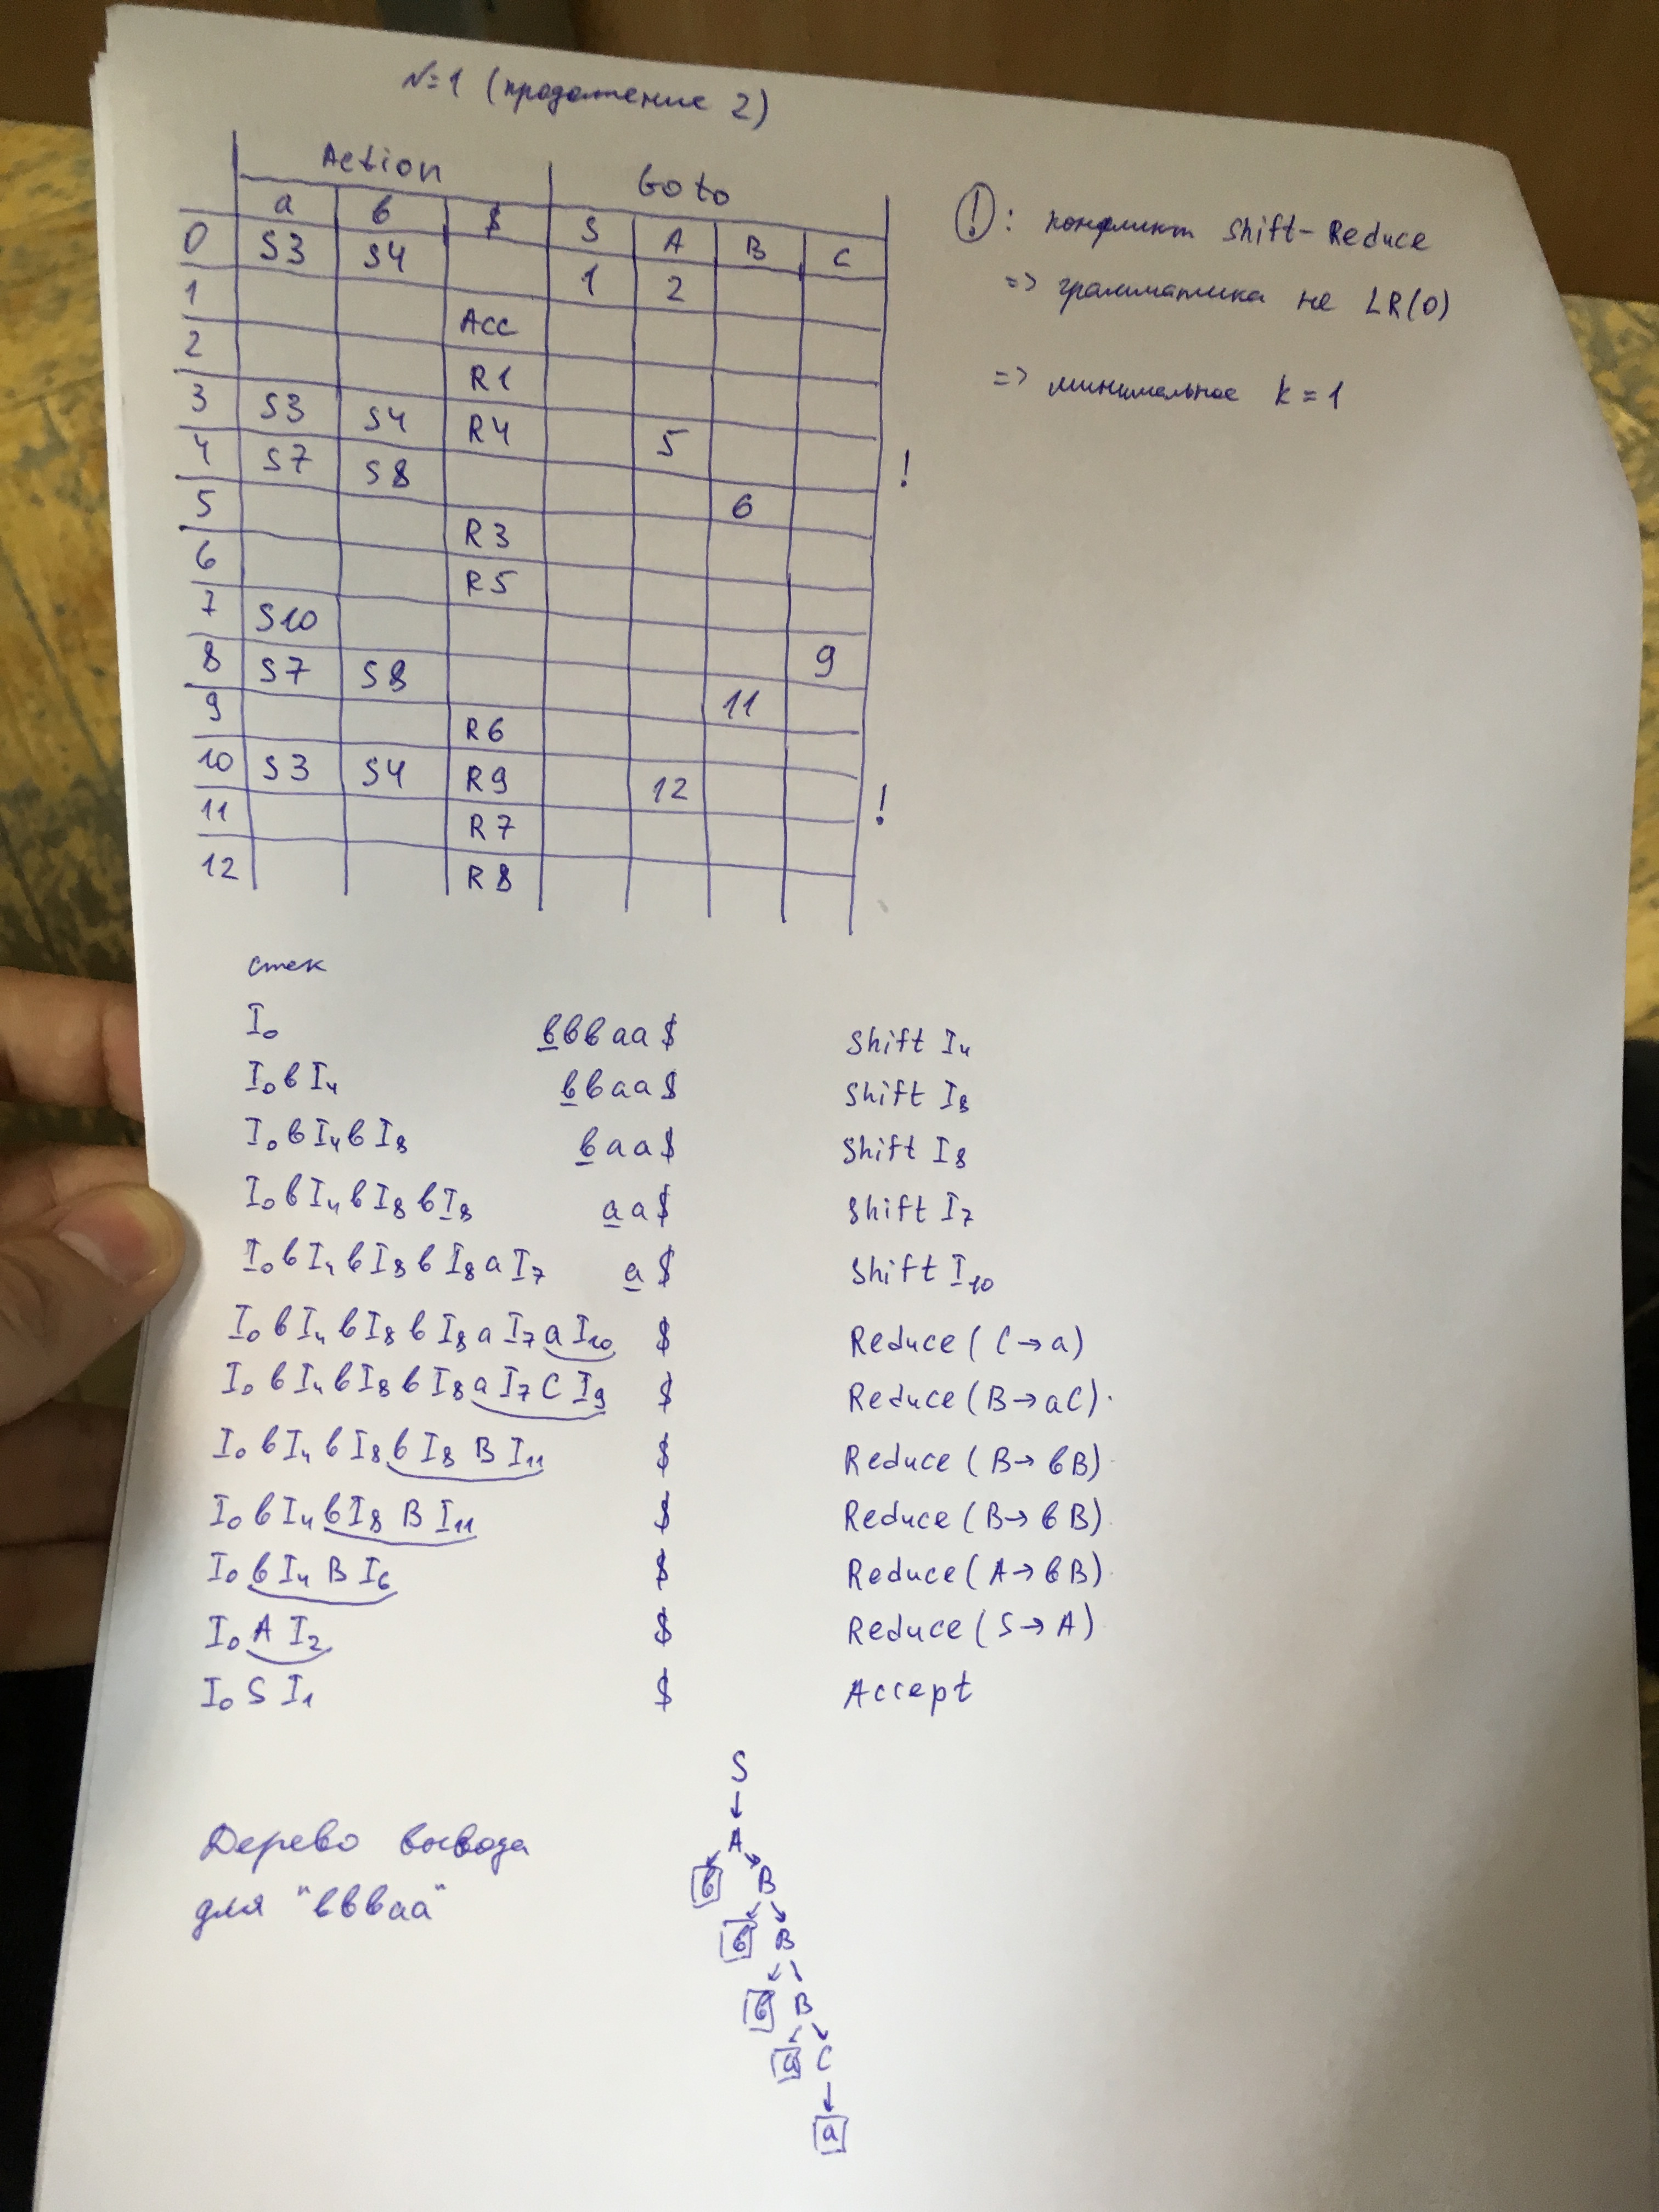 №1 (продолжение 2)
Action Goto
a в $ S A B C
0 S3 S4 1 2
1 Acc
2 R1
3 S3 S4 R4 5 !
4 S7 S8 6
5 R3
6 R5
7 S10 9
8 S7 S8 11
9 R6
10 S3 S4 R9 12 !
11 R7
12 R8
!: конфликт Shift-Reduce
=> грамматика не LR(0)
=> минимальное k = 1
стек
I₀ вввaa$ Shift I₄
I₀вI₄ ввaa$ Shift I₈
I₀вI₄вI₈ вaa$ Shift I₈
I₀вI₄вI₈вI₈ aa$ Shift I₇
I₀вI₄вI₈вI₈aI₇ a$ Shift I₁₀
I₀вI₄вI₈вI₈aI₇aI₁₀ $ Reduce(C→a)
I₀вI₄вI₈вI₈aI₇CI₉ $ Reduce(B→aC)
I₀вI₄вI₈вI₈BI₁₁ $ Reduce(B→вB)
I₀вI₄вI₈BI₁₁ $ Reduce(B→вB)
I₀вI₄BI₆ $ Reduce(A→вB)
I₀AI₂ $ Reduce(S→A)
I₀SI₁ $ Accept
Дерево вывода
для "вввaa"
S
A
в B
в B
в B
a C
a